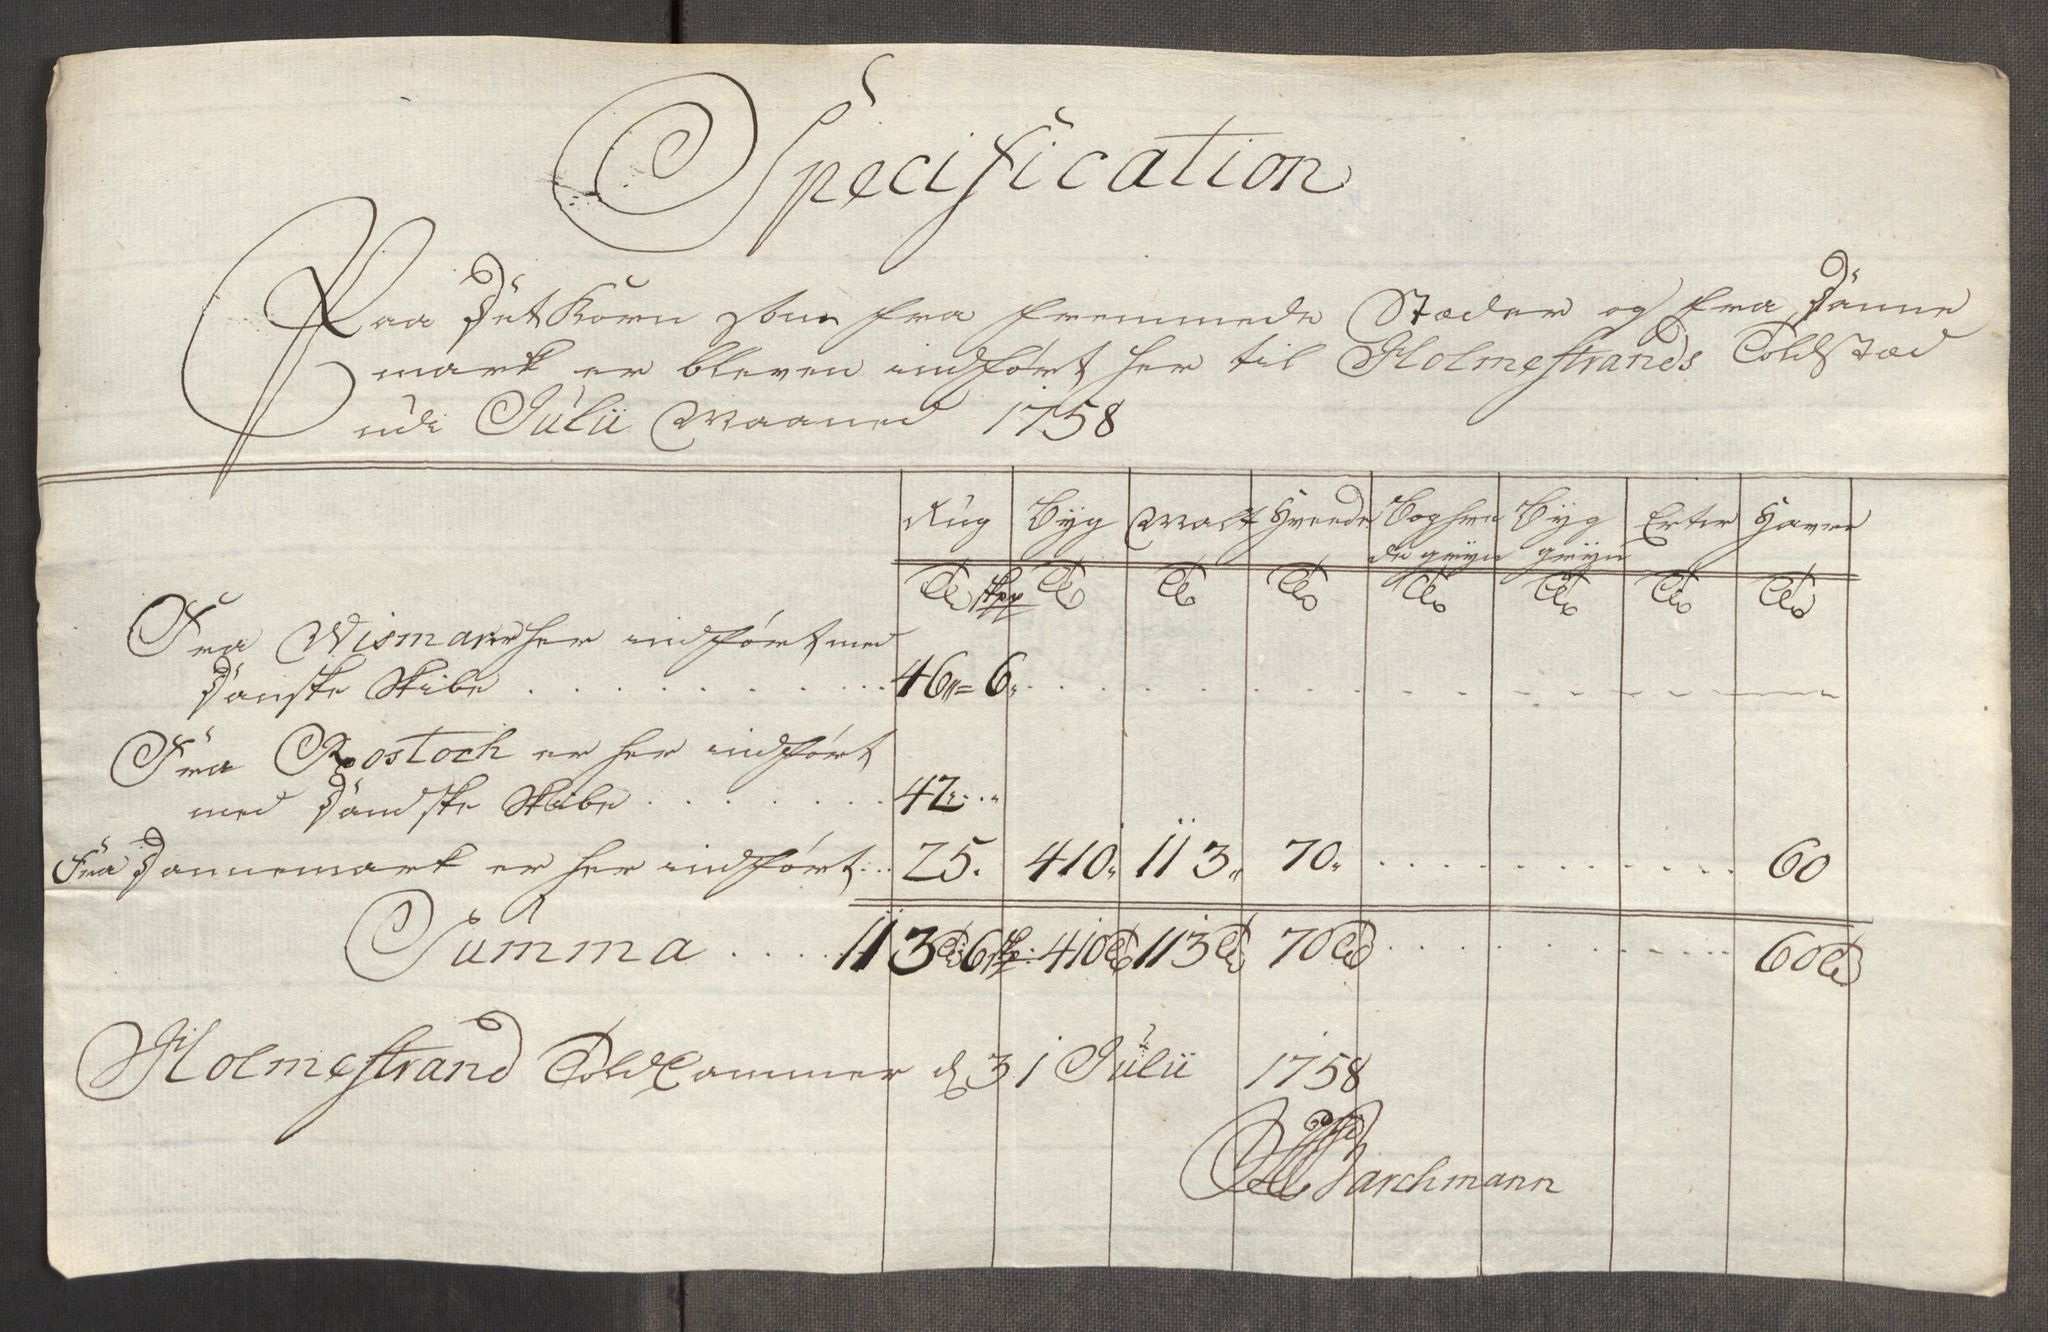 Specification
Paa Det Korn som fra fremmede Stæder og fra Danne
mark er bleven indført her til Holmestrands Toldstæd
udi Julii Maaned 1758
Rug Byg Malt Hvede Boghve Byg Erter Havre
de gryn gryn
Tr skpr Tr Tr Tr Tr Tr Tr Tr
Fra Wismar er her indført med
Danske Skibe . . . . . . . . . . 46 = 6 . . . . . . .
Fra Rostoch er her indført
med Dandske Skibe . . . . . . . 42 . .
Fra Dannemark er her indført . . 25. 410. 113. 70. . . . . . . 60
Summa . . . . 113 Tr 6 skpr 410 Tr 113 Tr 70 Tr . . . . . . 60 Tr
Holmestrand Told Cammer d 31 Julii 1758
Barchmann